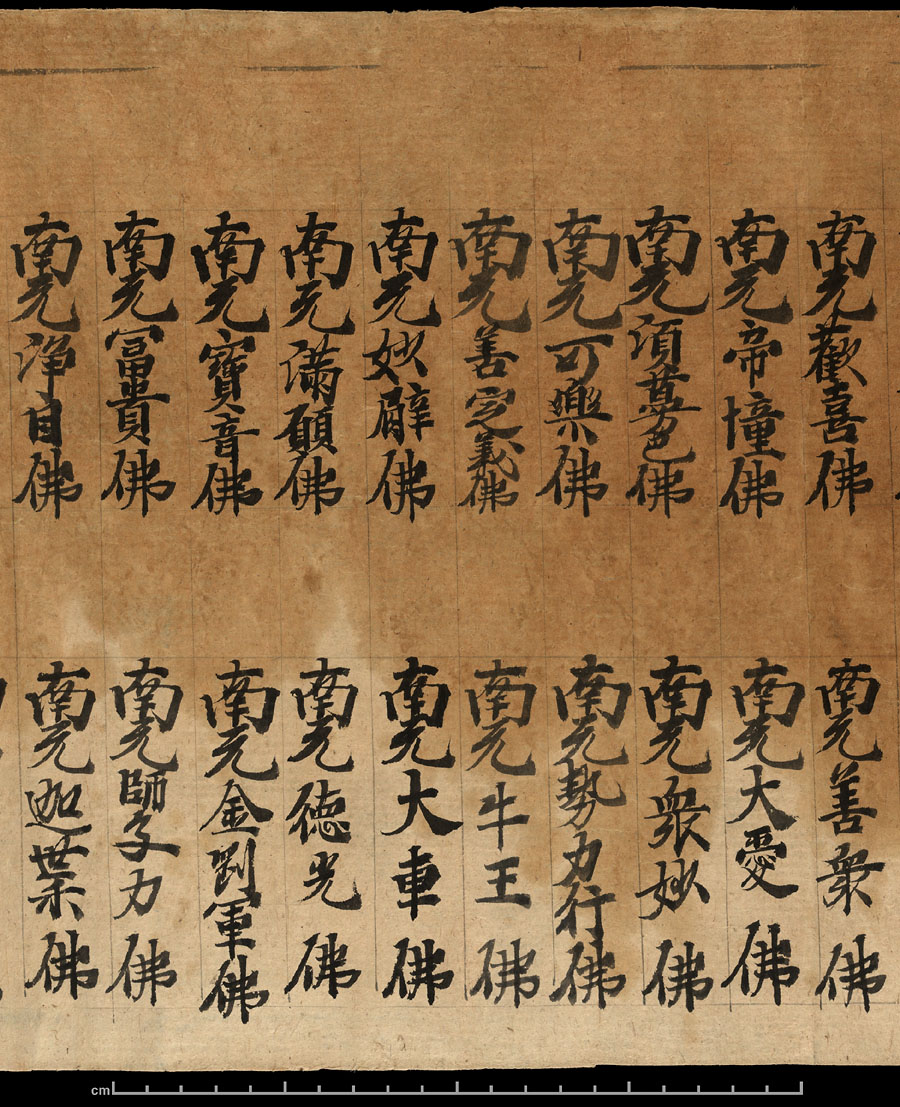 南无歡喜佛 南无善衆佛
南无帝憧佛 南无大愛佛
南无須蔓色佛 南无衆妙佛
南无可樂佛 南无勢力行佛
南无善定義佛 南无牛王佛
南无妙臂佛 南无大車佛
南无滿願佛 南无德光佛
南无寶音佛 南无金剛軍佛
南无冨貴佛 南无師子力佛
南无淨目佛 南无迦葉佛
cm